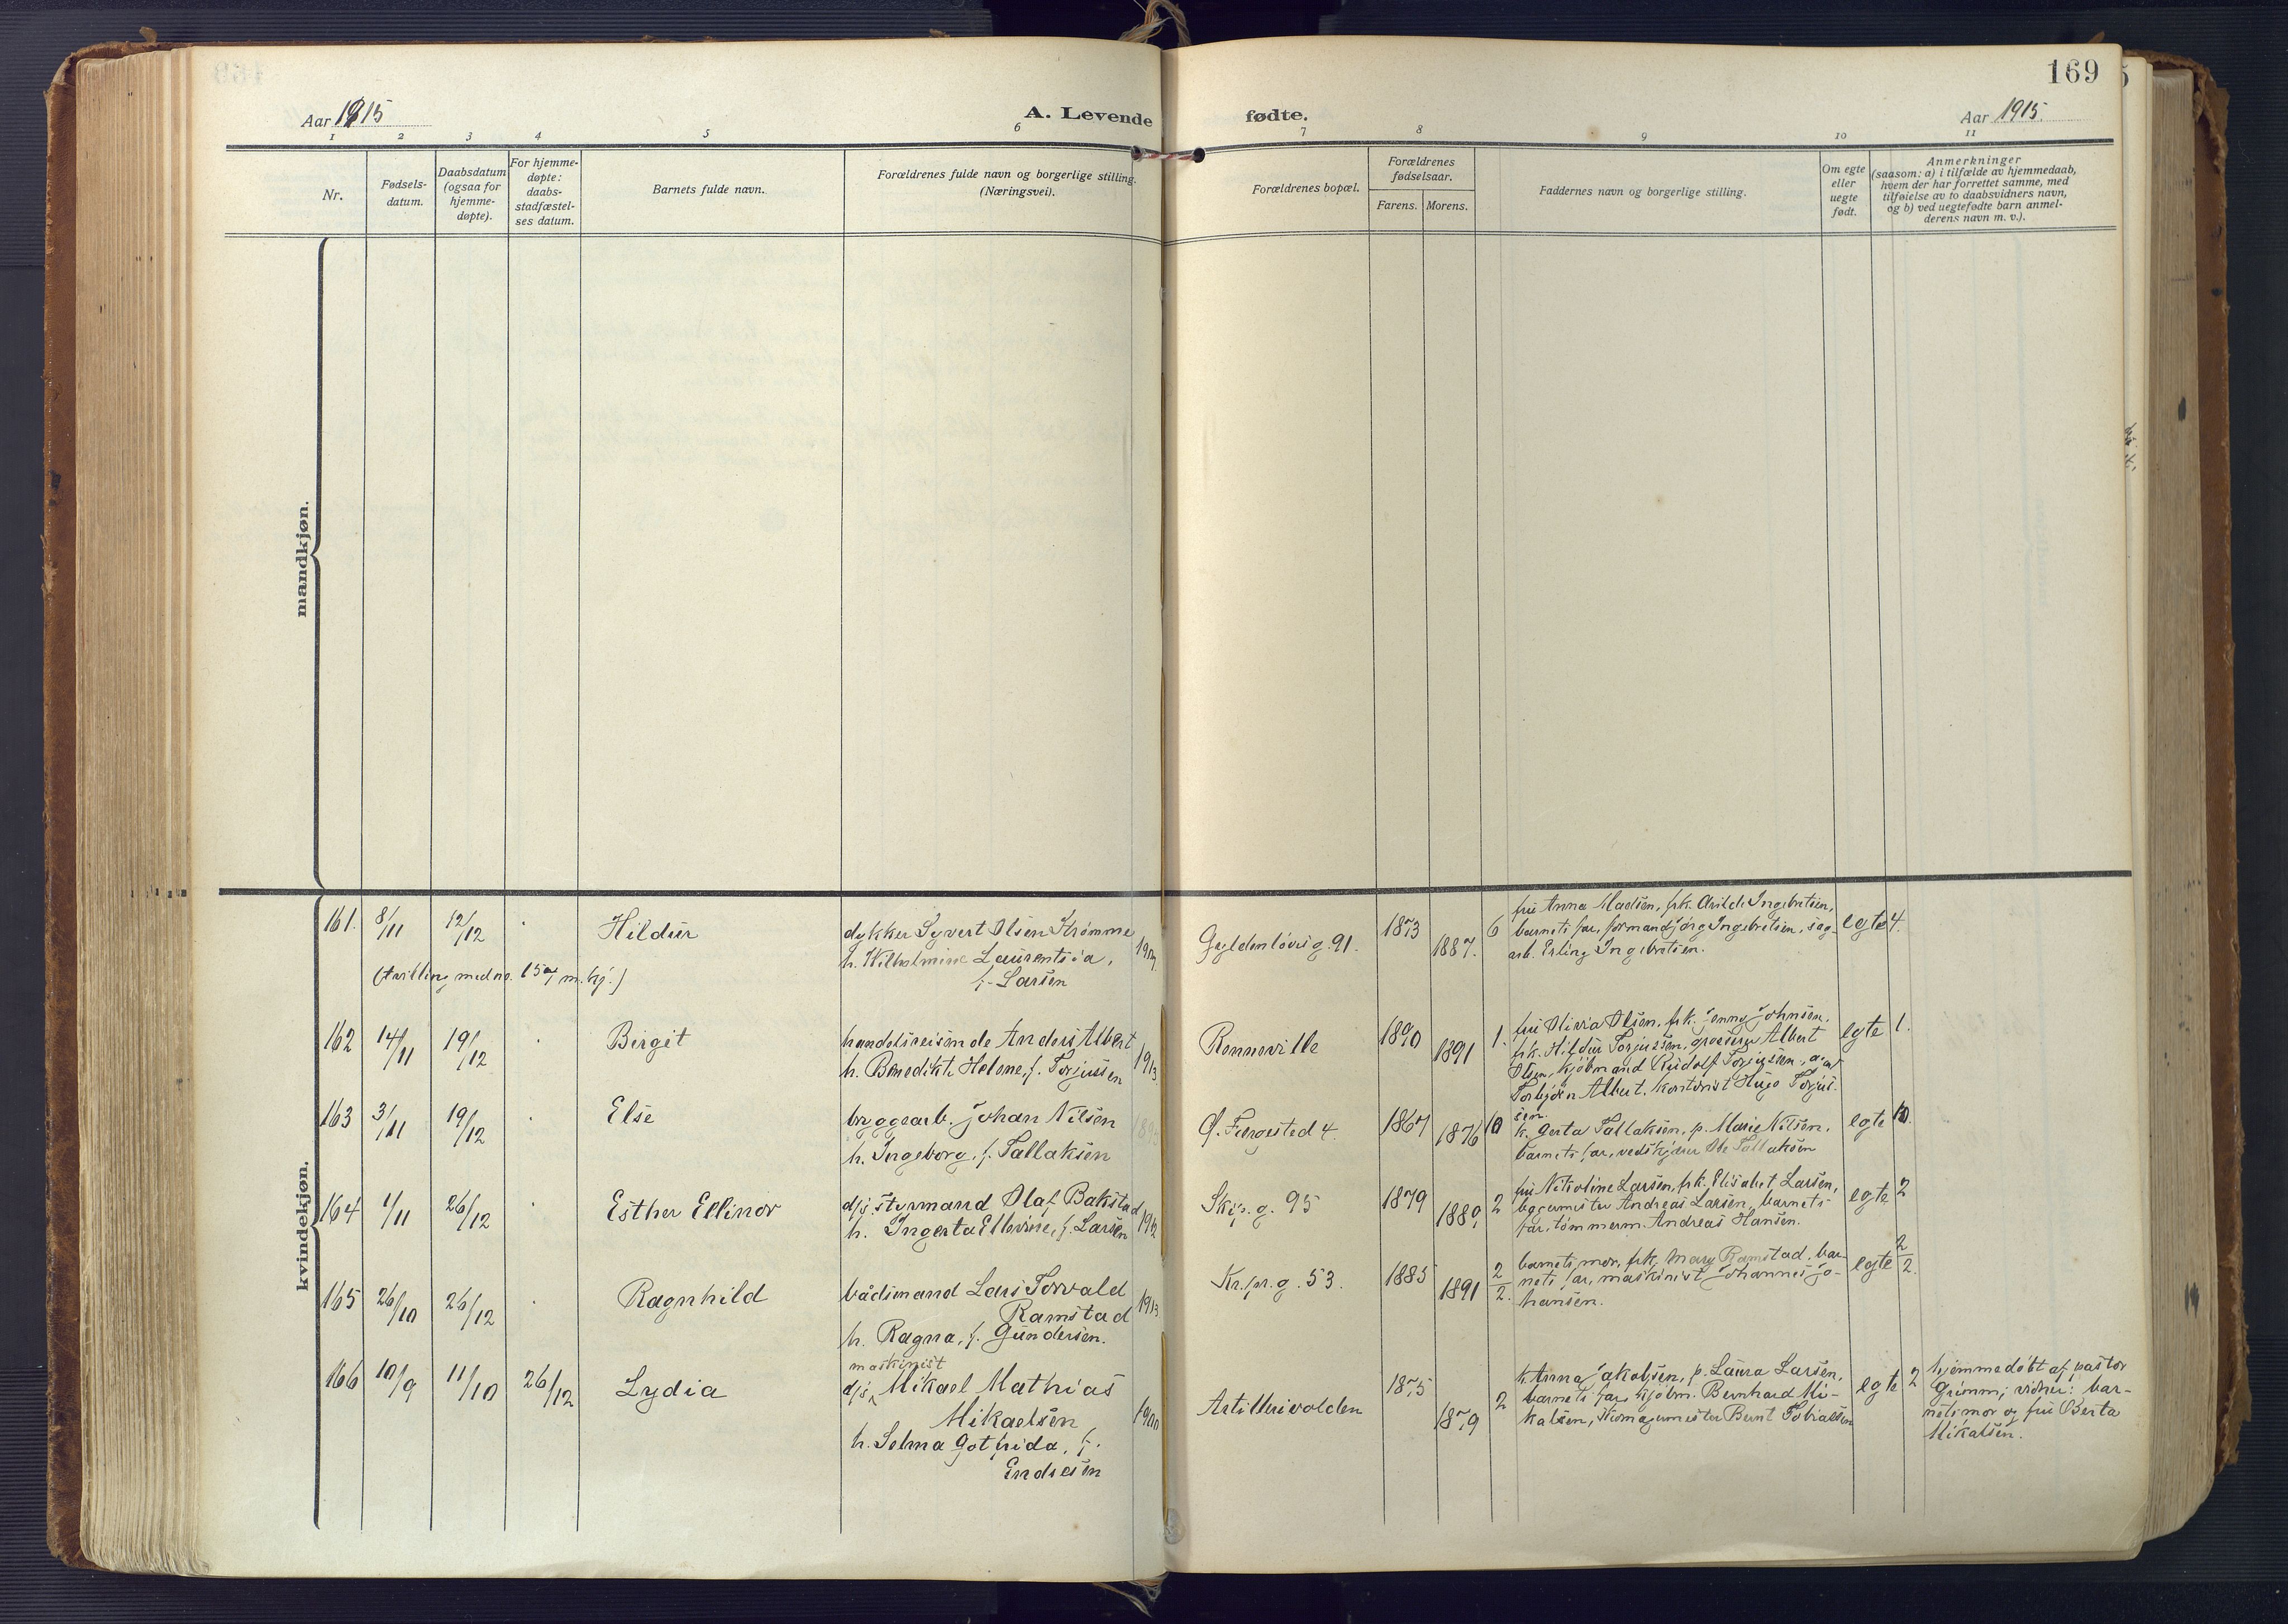 169
Aar 1915
A. Levende fødte.
Aar 1915.
1 2 3 4 5 6 7 8 9 10 11
Nr.
Fødsels-
datum.
Daabsdatum
(ogsaa for
hjemme-
døpte).
For hjemme-
døpte:
daabs-
stadfæstel-
ses datum.
Barnets fulde navn.
Forældrenes fulde navn og borgerlige stilling.
(Næringsvei).
Forældrenes bopæl.
Forældrenes
fødselsaar.
Farens. Morens.
Faddernes navn og borgerlige stilling.
Om egte
eller
uegte
født.
Anmerkninger
(saasom: a) i tilfælde av hjemmedaab,
hvem der har forrettet samme, med
tilføielse av to daabsvidners navn,
og b) ved uegtefødte barn anmel-
derens navn m. v.).
mandkjøn.
kvindekjøn.
161. 8/11 12/12 Hildur
(tvilling med no. m. kj.)
dykker Syvert Olsen Strømme
h. Wilhelmine Laurentsia,
f. Larsen
Gyldenløvsg. 91. 1873 1887. 6
fru Anna Madsen, frk. Ingebretsen,
barnets far, formand Jørg Ingebretsen, sag-
arb. Erling Ingebretsen.
egte 4.
162 14/11 19/12 Birgit
handelsreisende Anders Albert
h. Benedikte Helene, f. Torjussen
1913
Renneville 1890 1891 1.
fru Olivia Olsen, frk. Jenny Johnsen,
frk. Hildur Torjussen, grosserer Albert
Olsen, kjøbmand Rudolf Torjussen,
Torbjørn Albert, kontorist Hugo Torjus-
sen.
egte 1.
163 3/11 19/12 Else
bryggearb. Johan Nilsen
h. Ingeborg, f. Tallaksen
Ø. Færgested 4. 1867 1876 10
k. Gerta Tallaksen, p. Marie Nilsen,
barnets far, vedskjærer Ole Tallaksen
egte 10.
164 1/11 26/12 Esther Ellinor
d/s. styrmand Olaf Bakstad
h. Ingerta Ellevine, f. Larsen
1912
Skip. g. 95 1879 1889, 2
fru Nikoline Larsen, frk. Elisabet Larsen,
bagermester Andreas Larsen, barnets
far, tømmerm. Andreas Hansen.
egte 2
165 26/10 26/12 Ragnhild
bådsmand Lars Torvald
Ramstad
h. Ragna, f. Gundersen.
1913
Kr. pr. g. 53. 1885 1891 2/2.
barnets mor, frk. Mary Ramstad, bar-
nets far, maskinist Johannes Jo-
hansen.
egte 2/2.
166 10/9 11/10 26/12 Lydia
maskinist
d/s, Mikael Mathias
Mikaelsen
h. Selma Gotfrida, f.
Endresen
1900
Artillerivolden 1875 1879 2
k. Anna Jakobsen, p. Laura Larsen,
barnets far, kjøbm. Bernhard Mi-
kalsen, skomagermester Bernt Tobiassen
egte 2
hjemmedøbt af pastor
Grimm; vidner: bar-
nets mor og fru Berta
Mikalsen.